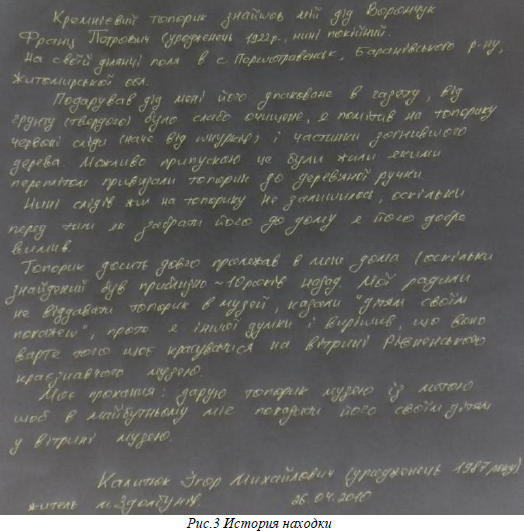 Кремнієвий топорик знайшов мій дід Ворончук
Франц Петрович (уродженець 1922р., нині покійний.
На своїй ділянці поля в с. Першотравенськ, Баранівського р-ну,
Житомирської обл.
Подарував дід мені його упаковане в газету, від
грунту (твердого) було слабо очищене, я помітив на топорику
червоні сліди (наче від шнурків) і частинки зогнившого
дерева. Можливо припускаю це були жили якими
перемотали привязали топорик до деревяної ручки.
Нині слідів жил на топорику не залишилось, оскільки
перед тим як забрати його до дому я його добре
вимив.
Топорик досить довго пролежав в мене дома (оскільки
знайдений був приблизно ~10 років назад. Мої радили
не віддавати топорик в музей, казали "дітям своїм
покажеш", проте я іншої думки і вирішив, що воно
варте того щоб красуватися на вітрині Рівненського
краєзнавчого музею.
Моє прохання: дарую топорик музею із метою
щоб в майбутньому міг показати його своїм дітям
у вітрині музею.
Ігор Михайлович (уродженець 1987 року)
житель м. Здолбунів 26.04.2010
Рис.3 История находки